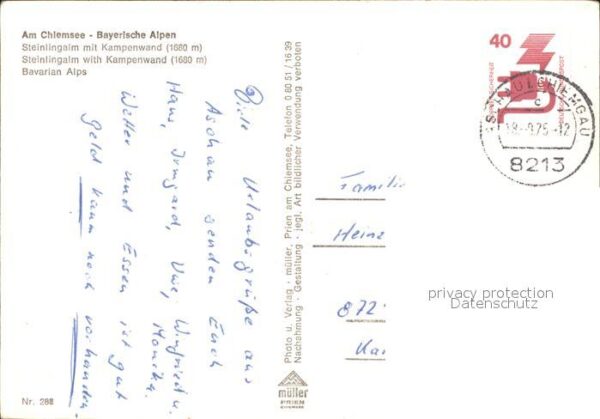 Am Chiemsee - Bayerische Alpen
Steinlingalm mit Kampenwand (1680 m)
Steinlingalm with Kampenwand (1680 m)
Bavarian Alps
Viele Urlaubsgrüße aus
Aschau senden Euch
Hans, Irmgard, Uwe, Winfried u.
Monika.
Wetter und Essen ist gut
Geld kaum noch vorhanden.
Nr. 288
Photo u. Verlag · müller, Prien am Chiemsee, Telefon 0 80 51 / 16 39
Nachahmung · Gestaltung · jegl. Art bildlicher Verwendung verboten
müller
PRIEN
CHIEMSEE
40
ASCHAU I. CHIEMGAU
c
-12
8213
Famili
Heinz
872
Kar
privacy protection
Datenschutz